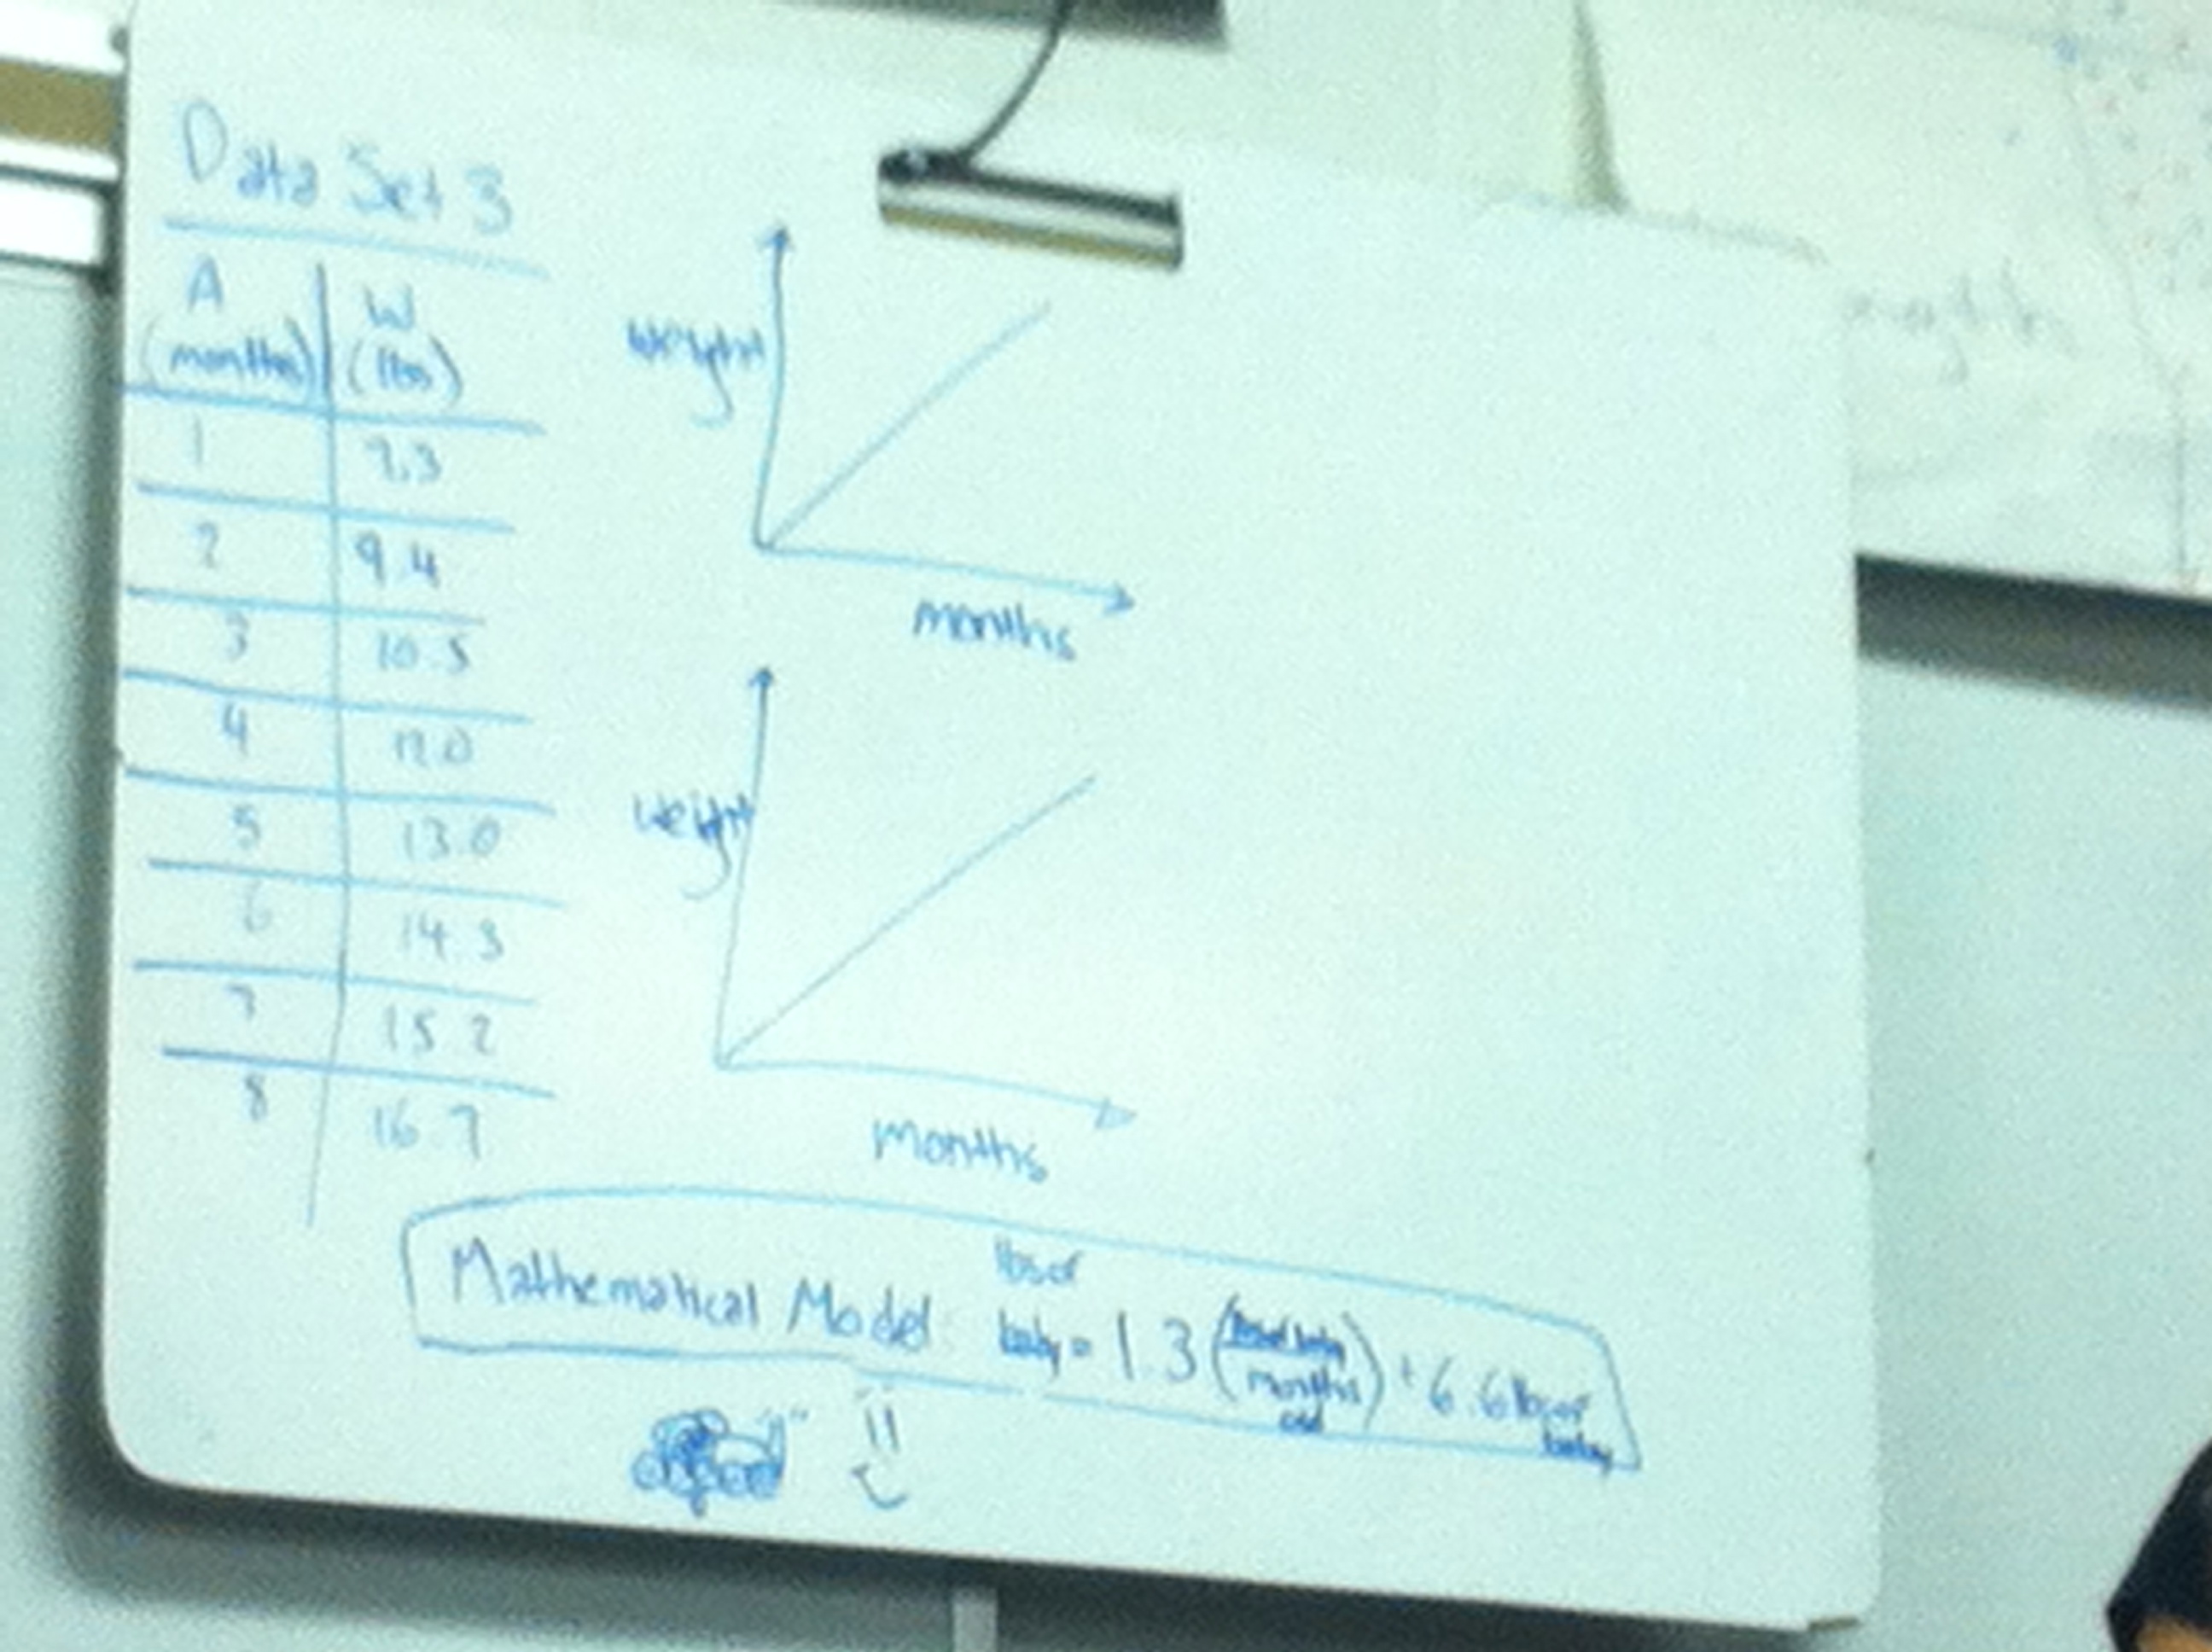 Data Set 3
A W
(months) (lbs)
1 7.3
2 9.4
3 10.5
4 12.0
5 13.0
6 14.3
7 15.2
8 16.7
weight
months
weight
Months
lbs of
Mathematical Model: baby = 1.3 (lbs of baby / months old) + 6.6 lbs of baby